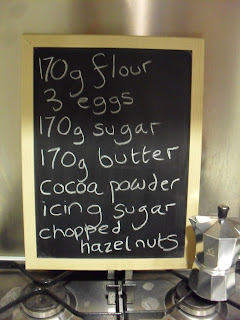 170g flour
3 eggs
170g sugar
170g butter
cocoa powder
icing sugar
chopped
hazelnuts